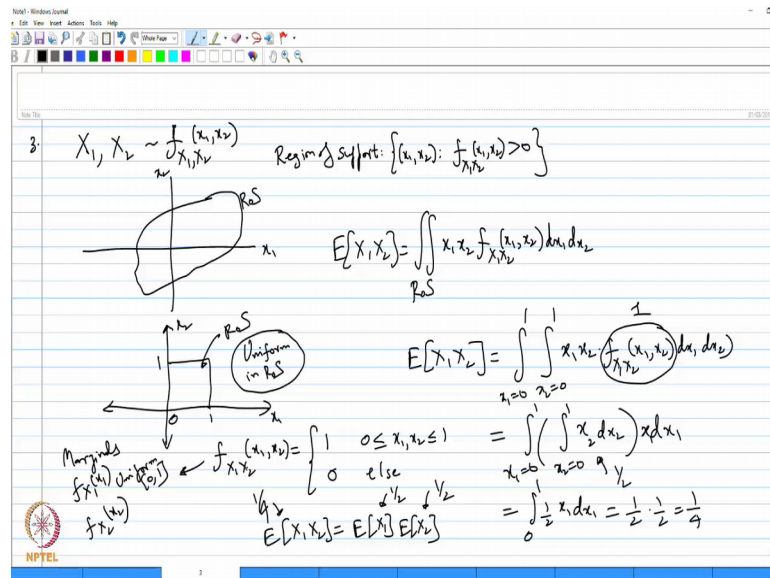 Note1 - Windows Journal
File Edit View Insert Actions Tools Help
Whole Page
Note Title
01-03-201
3. X₁, X₂ ~ f_{X₁,X₂}(x₁,x₂)
Region of support: {(x₁,x₂): f_{X₁X₂}(x₁,x₂)>0}
x₂
RoS
x₁
E[X₁X₂] = ∬_{RoS} x₁x₂ f_{X₁X₂}(x₁,x₂) dx₁dx₂
x₂
RoS
1
Uniform
in RoS
0 1 x₁
1
E[X₁X₂] = ∫_{x₁=0}^{1} ∫_{x₂=0}^{1} x₁x₂ · f_{X₁X₂}(x₁,x₂) dx₁ dx₂)
Marginals
f_{X₁}(x₁) Uniform [0,1]
f_{X₂}(x₂)
f_{X₁X₂}(x₁,x₂) = { 1 0 ≤ x₁,x₂ ≤ 1
0 else
= ∫_{x₁=0}^{1} ( ∫_{x₂=0}^{1} x₂dx₂ ) x₁dx₁
1/2
1/4 1/2 1/2
E[X₁X₂] = E[X₁] E[X₂]
= ∫_{0}^{1} 1/2 x₁dx₁ = 1/2 · 1/2 = 1/4
NPTEL
3